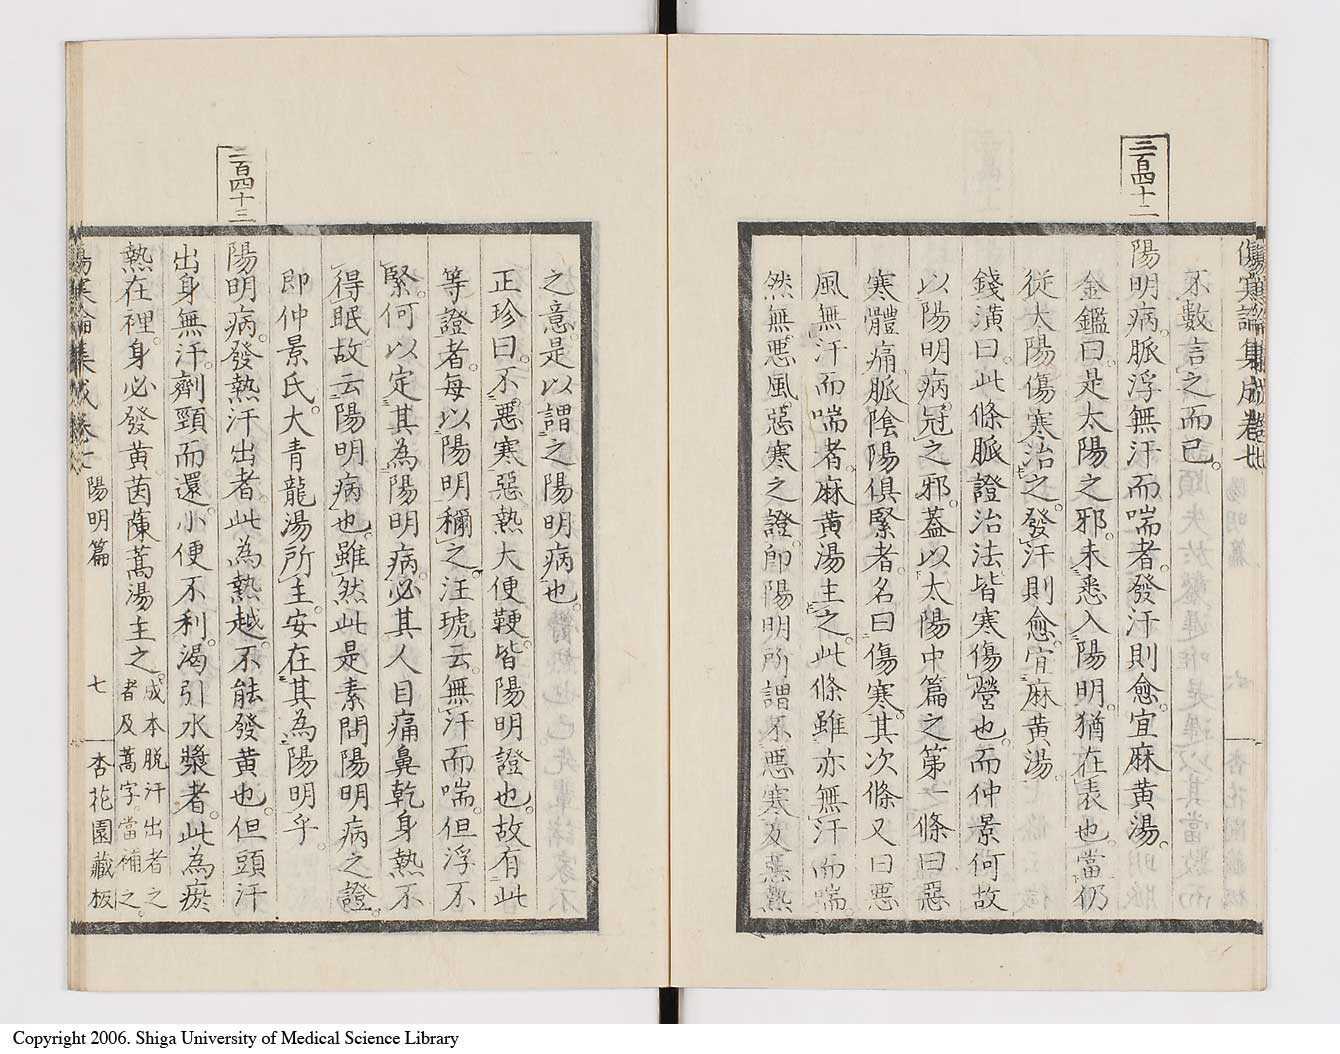 三百四十二
不數言之而已。
陽明病。脈浮無汗而喘者。發汗則愈。宜麻黃湯。
金鑑曰。是太陽之邪。未悉入陽明。猶在表也。當仍
從太陽傷寒治之。發汗則愈。宜麻黃湯。
錢潢曰。此條脈證治法皆寒傷營也。而仲景何故
以陽明病冠之邪。蓋以太陽中篇之第一條曰惡
寒體痛。脈陰陽俱緊者。名曰傷寒。其次條又曰惡
風無汗而喘者。麻黃湯主之。此條雖亦無汗而喘。
然無惡風。惡寒之證。卽陽明所謂不惡寒反惡熱
之意。是以謂之陽明病也。
正珍曰。不惡寒惡熱大便鞕。皆陽明證也。故有此
等證者。每以陽明稱之。汪琥云。無汗而喘。但浮不
緊。何以定其為陽明病。必其人目痛鼻乾身熱不
得眠。故云陽明病也。雖然此是素問陽明病之證。
即仲景氏。大青龍湯所主。安在其為陽明乎。
二百四十三
陽明病。發熱汗出者。此為熱越。不能發黃也。但頭汗
出身無汗。劑頸而還。小便不利。渴引水漿者。此為瘀
熱在裡。身必發黃。茵蔯蒿湯主之。成本脫汗出者之
者及蒿字當補之。
傷寒論集成卷七 陽明篇 七 杏花園藏板
Copyright 2006. Shiga University of Medical Science Library